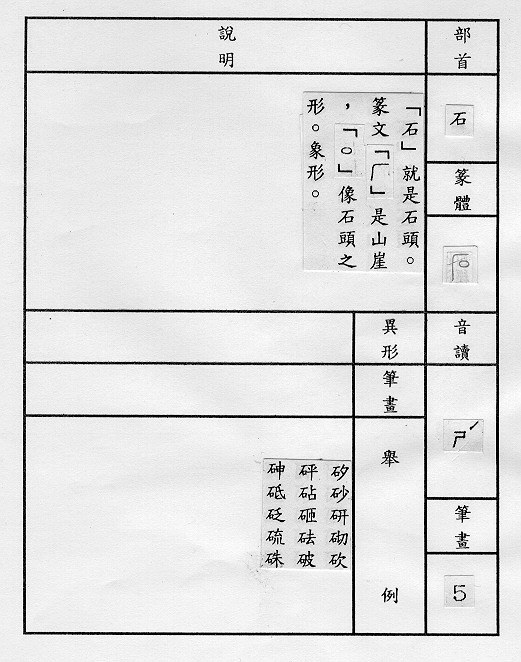 部首
石
篆體
音讀
ㄕˊ
筆畫
5
說明
「石」就是石頭。
篆文「厂」是山崖
，「○」像石頭之
形。象形。
異形
筆畫
舉例
矽砂研砌砍
砰砧砸砝破
砷砥砭硫硃